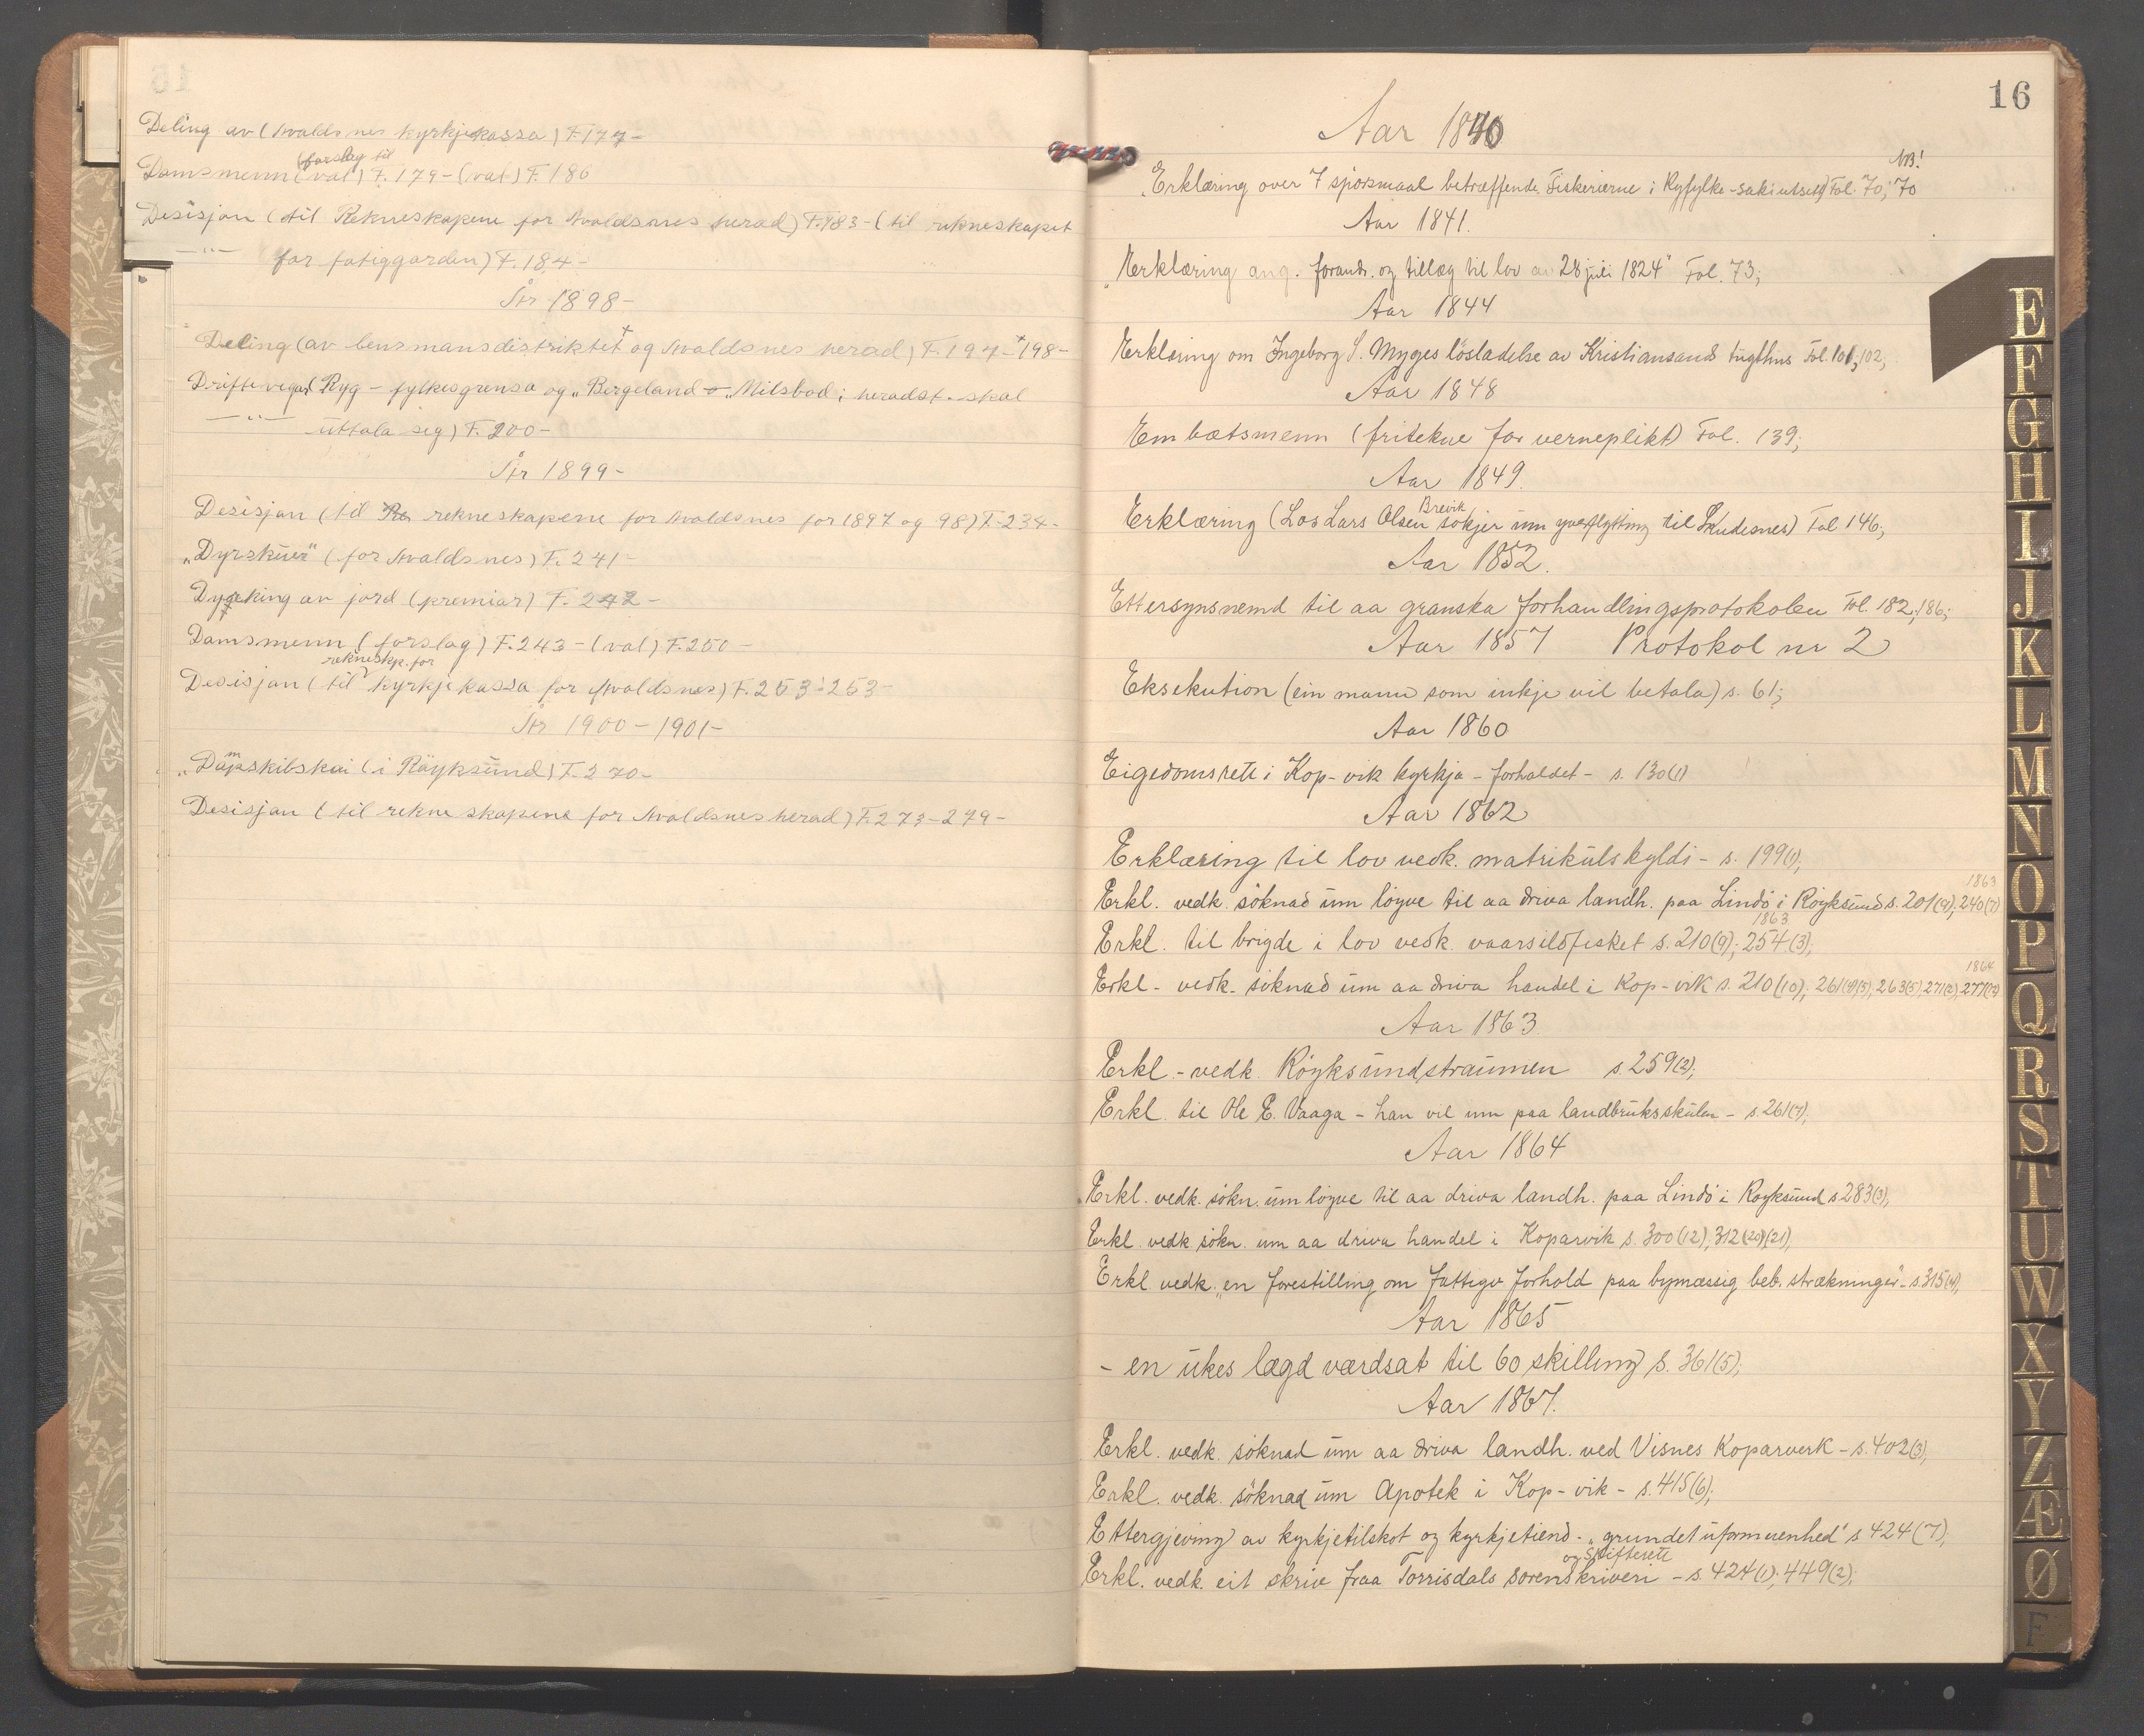 Deling av (Avaldsnes kyrkjekassa) F. 177-
(forslag til
Domsmenn (val) F. 179 - (val) F. 186
Desisjon (til Rekneskapene for Avaldsnes herad) F. 183 - (til rekneskapet
—"— for fatiggarden) F. 184 -
År 1898 -
Deling (av lensmansdistriktet + og Avaldsnes herad) F. 197 - + 198 -
Driftevegar (Ryg - fylkesgrensa og „Bergeland - „Milsbod; heradst. skal
—"— uttala seg) F. 200 -
År 1899 -
Desisjon (til rekneskapene for Avaldsnes for 1897 og 98) F. 234 -
„Dyrskuer" (for Avaldsnes) F. 241 -
Dyrking av jord (premiar) F. 242 -
Domsmenn (forslag) F. 243 - (val) F. 250 -
rekneskp. for
Desisjon (til kyrkjekassa for Avaldsnes) F. 253 : 253 -
År 1900 - 1901 -
„Dampskibskai (i Röyksund) F. 270 -
Desisjon (til rekneskapene for Avaldsnes herad) F. 273 - 279 -
16
Aar 1840
NB!
„Erklæring over 7 spørsmaal betræffende Fiskerierne i Ryfylke - saki utsett) Fol. 70, 70
Aar 1841.
„Erklæring ang. forandr. og tillæg til lov av 28 juli 1824" Fol. 73;
Aar 1844
Erklæring om Ingeborg S. Myges lösladelse av Kristiansands tugthus Fol. 101; 102;
Aar 1848
Embætsmenn (fritekne for verneplikt) Fol. 139;
Aar 1849.
Brevik
Erklæring (Los Lars Olsen søkjer um yverflytting til Skudesnes) Fol 146;
Aar 1852.
Ettersynsnemd til aa granska forhandlingsprotokolen Fol. 182; 186;
Aar 1857 Protokol nr 2
Eksekution (ein mann som inkje vil betala) s. 61;
Aar 1860
Eigedomsrett i Kop-vik kyrkja - forholdet - s. 130(1)
Aar 1862
Erklæring til lov vedk. matrikulskyldi - s. 199(1);
1863
Erkl. vedk. søknad um løyve til aa driva landh. paa Lindö i Röyksund s. 201(9); 240(7)
1863
Erkl. til brigde i lov vedk. vaarsildfisket s. 210(9); 254(3);
1864
Erkl - vedk. søknad um aa driva handel i Kop-vik s. 210(10); 261(4)(5), 263(5), 271(2), 277(7)
Aar 1863
Erkl - vedk. Röyksundstraumen s. 259(2);
Erkl. til Ole E. Vaaga - han vil inn paa landbruksskulen - s. 261(7);
Aar 1864
Erkl. vedk. søkn. um løyve til aa driva landh. paa Lindö i Røyksund s 283(3);
Erkl. vedk. søkn. um aa driva handel i Koparvik s. 300(12), 312(20)(21),
Erkl. vedk. „en forestilling om fattigv. forhold paa bymæssig beb. strækninger" - s. 315(4),
Aar 1865
- en ukes lægd værdsat til 60 skilling s. 361(5);
Aar 1867.
Erkl. vedk. søknad um aa driva landh. ved Visnes Koparverk - s. 402(3);
Erkl. vedk. søknad um Apotek i Kop-vik - s. 415(6);
Ettergjeving av kyrkjetilskot og kyrkjetiend - „grundet uformuenhed" s 424(7);
og Skifterett
Erkl. vedk. eit skriv fraa Torrisdals sorenskriveri - s. 424(1); 449(2);
E
F
G
H
I
J
K
L
M
N
O
P
Q
R
S
T
U
W
X
Y
Z
Æ
Ø